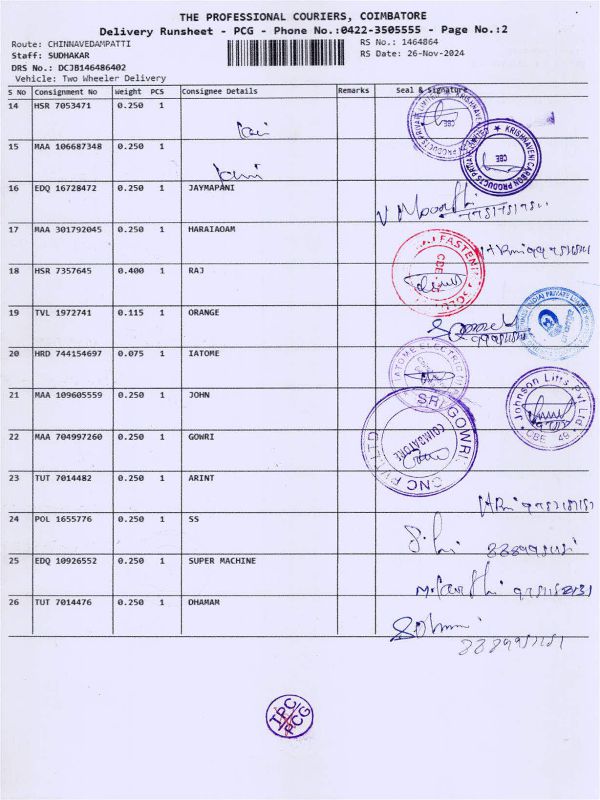 THE PROFESSIONAL COURIERS, COIMBATORE
Delivery Runsheet - PCG - Phone No.:0422-3505555 - Page No.:2
Route: CHINNAVEDAMPATTI
RS No.: 1464864
Staff: SUDHAKAR
RS Date: 26-Nov-2024
DRS No.: DCJB146486402
Vehicle: Two Wheeler Delivery
S No Consignment No Weight PCS Consignee Details Remarks Seal & signature
14 HSR 7053471 0.250 1
15 MAA 106687348 0.250 1
16 EDQ 16728472 0.250 1 JAYMAPANI
17 MAA 301792045 0.250 1 HARAIAOAM
18 HSR 7357645 0.400 1 RAJ
19 TVL 1972741 0.115 1 ORANGE
20 HRD 744154697 0.075 1 IATOME
21 MAA 109605559 0.250 1 JOHN
22 MAA 704997260 0.250 1 GOWRI
23 TUT 7014482 0.250 1 ARINT
24 POL 1655776 0.250 1 SS
25 EDQ 10926552 0.250 1 SUPER MACHINE
26 TUT 7014476 0.250 1 DHAMAM
KRISHNAVENI CARBON PRODUCTS PRIVATE LIMITED
CBE
KRISHNAVENI CARBON PRODUCTS PRIVATE LIMITED
CBE
FASTENI
IATOME ELECTRIC
Johnson Lifts Pvt Ltd
CBE 49
SRI GOWRI CNC PVT LTD
COIMBATORE
TPC/PCG